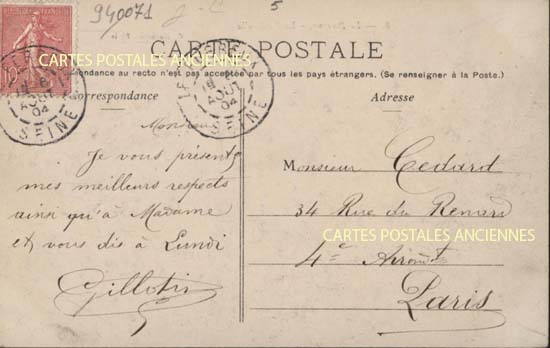 940071
5
CARTES POSTALES ANCIENNES
CARTE POSTALE
ndance au recto n'est pas acceptée par tous les pays étrangers. (Se renseigner à la Poste.)
orrespondance
Adresse
10
AOUT
04
SEINE
19
AOUT
04
SEINE
Monsieur
Je vous présente
mes meilleurs respects
ainsi qu'à Madame
et vous dis à Lundi
Gillotin
Monsieur Cedard
34 Rue du Renard
CARTES POSTALES ANCIENNES
4e Arrondt
Paris